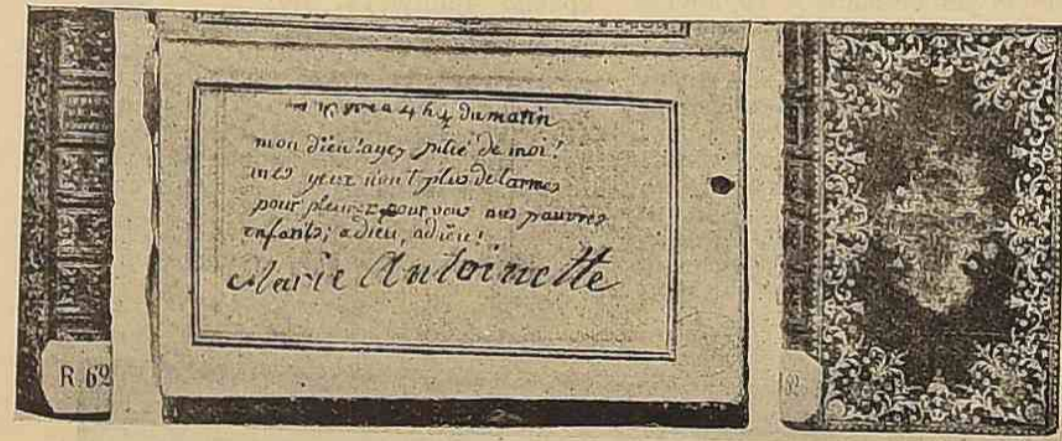 à 4 h ½ du matin
mon dieu! ayez pitié de moi!
mes yeux n'ont plus de larmes
pour pleurer pour vous mes pauvres
enfants; adieu, adieu!
Marie Antoinette
R. 62